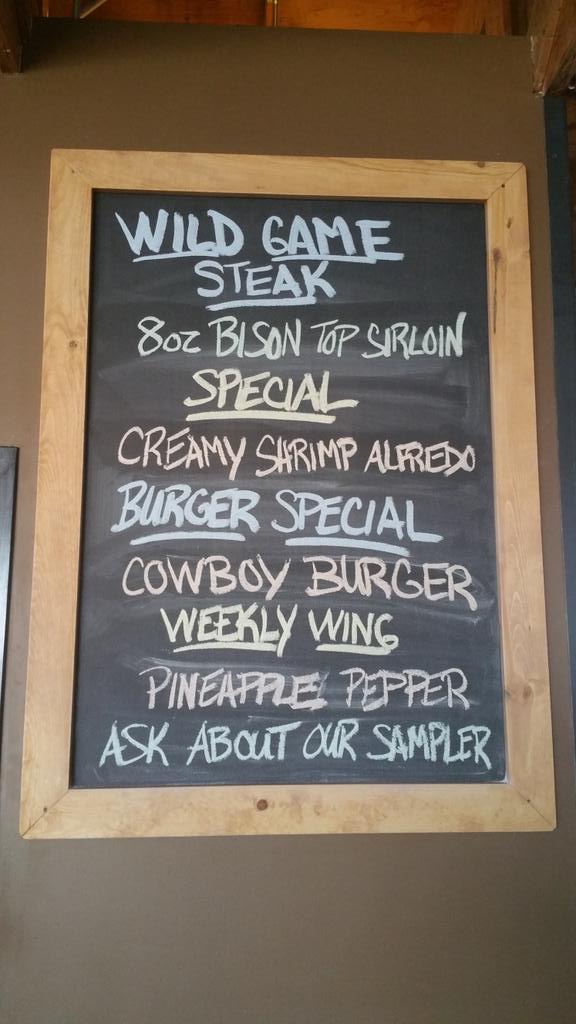 WILD GAME
STEAK
8oz BISON TOP SIRLOIN
SPECIAL
CREAMY SHRIMP ALFREDO
BURGER SPECIAL
COWBOY BURGER
WEEKLY WING
PINEAPPLE PEPPER
ASK ABOUT OUR SAMPLER